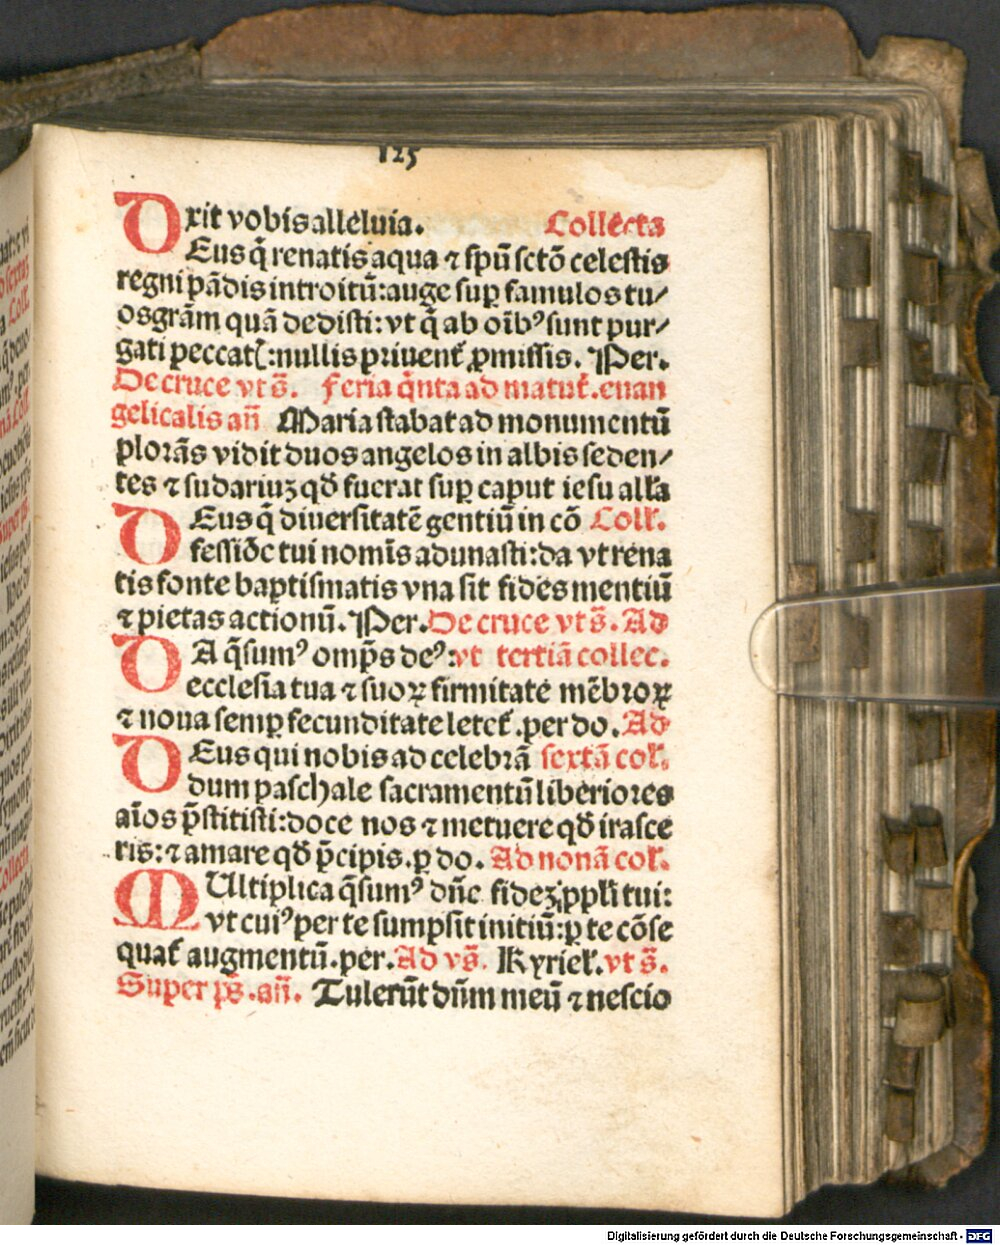 125
xit vobis alleluia. Collecta
DEus q̄ renatis aqua ⁊ spū sctō celestis
regni pādis introitū: auge sup̱ famulos tu⸗
os grām quā dedisti: vt q̄ ab oībꝰ sunt pur⸗
gati peccatꝭ: nullis priuent̃ ꝓmissis. Per.
De cruce vt s̄. Feria q̄nta ad matut̃. euan
gelicalis añ Maria stabat ad monumentū
plorās vidit duos angelos in albis seden⸗
tes ⁊ sudariuʒ qđ fuerat sup̱ caput iesu alła
DEus q̄ diuersitatē gentiū in cō Coll̃.
fessiōe tui nomīs adunasti: da vt rena
tis fonte baptismatis vna sit fides mentiū
⁊ pietas actionū. Per. De cruce vt s̄. Ad
DA q̄sumꝰ omp̄s deꝰ: vt tertiā collec.
ecclesia tua ⁊ suoꝝ firmitate mēbroꝝ
⁊ noua semp̱ fecunditate letet̃. per do. Ad
DEus qui nobis ad celebrā sextā col̃.
dum paschale sacramentū liberiores
aīos p̄stitisti: doce nos ⁊ metuere qđ irasce
ris: ⁊ amare qđ p̄cipis. p̱ do. Ad nonā col̃.
MUltiplica q̄sumꝰ dñe fideʒ ppli tui:
vt cuiꝰ per te sumpsit initiū: p̱ te cōse
quat̃ augmentū. per. Ad vs̄. Kyriel̃. vt s̄.
Super ps̄. añ. Tulerūt dūm meū ⁊ nescio
Digitalisierung gefördert durch die Deutsche Forschungsgemeinschaft - DFG